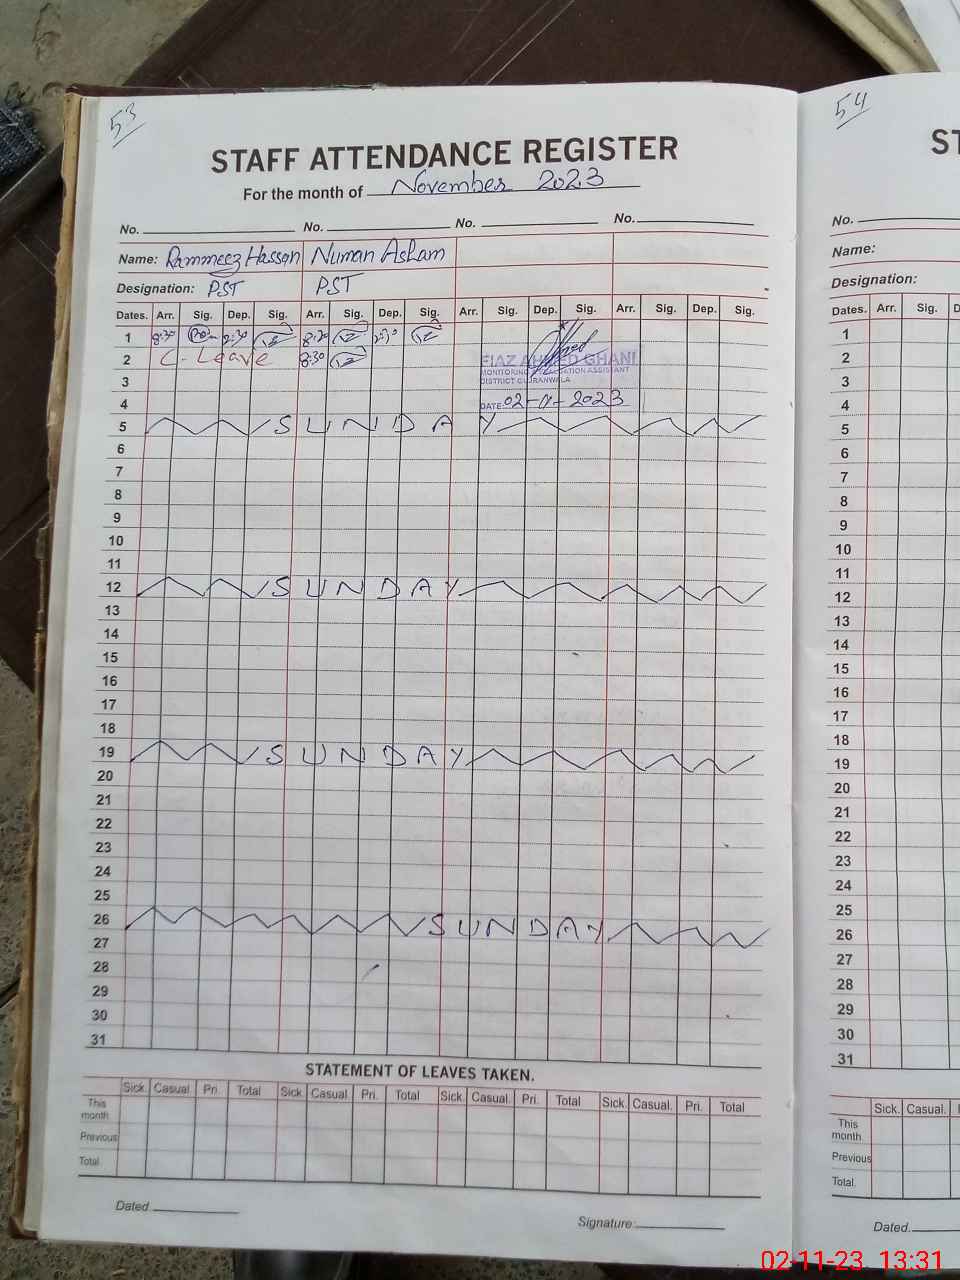 53
STAFF ATTENDANCE REGISTER
For the month of November 2023
No. No. No. No.
Name: Rammeez Hassan Numan Aslam
Designation: PST PST
Dates. Arr. Sig. Dep. Sig. Arr. Sig. Dep. Sig. Arr. Sig. Dep. Sig. Arr. Sig. Dep. Sig.
1 8:30 2:30 8:30 2:30
2 C-Leave 8:30
FIAZ AHMED GHANI
MONITORING EVALUATION ASSISTANT
DISTRICT GUJRANWALA
3
4
DATE: 02-11-2023
5 SUNDAY
6
7
8
9
10
11
12 SUNDAY
13
14
15
16
17
18
19 SUNDAY
20
21
22
23
24
25
26 SUNDAY
27
28
29
30
31
STATEMENT OF LEAVES TAKEN.
Sick. Casual. Pri. Total Sick. Casual. Pri. Total Sick. Casual. Pri. Total Sick. Casual. Pri. Total
This month.
Previous
Total.
Dated.
Signature:
54
ST
No.
Name:
Designation:
Dates. Arr. Sig. D
1
2
3
4
5
6
7
8
9
10
11
12
13
14
15
16
17
18
19
20
21
22
23
24
25
26
27
28
29
30
31
Sick. Casual.
This month.
Previous
Total.
Dated.
02-11-23 13:31